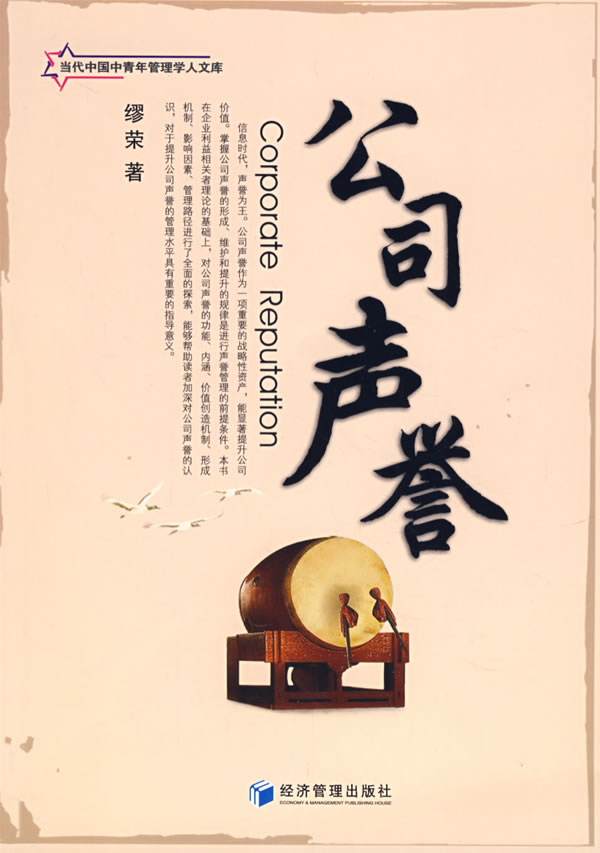 当代中国中青年管理学人文库
公司声誉
Corporate Reputation
缪荣 著
信息时代，声誉为王。公司声誉作为一项重要的战略性资产，能显著提升公司
价值。掌握公司声誉的形成、维护和提升的规律是进行声誉管理的前提条件。本书
在企业利益相关者理论的基础上，对公司声誉的功能、内涵、价值创造机制、形成
机制、影响因素、管理路径进行了全面的探索，能够帮助读者加深对公司声誉的认
识，对于提升公司声誉的管理水平具有重要的指导意义。
经济管理出版社
ECONOMY & MANAGEMENT PUBLISHING HOUSE